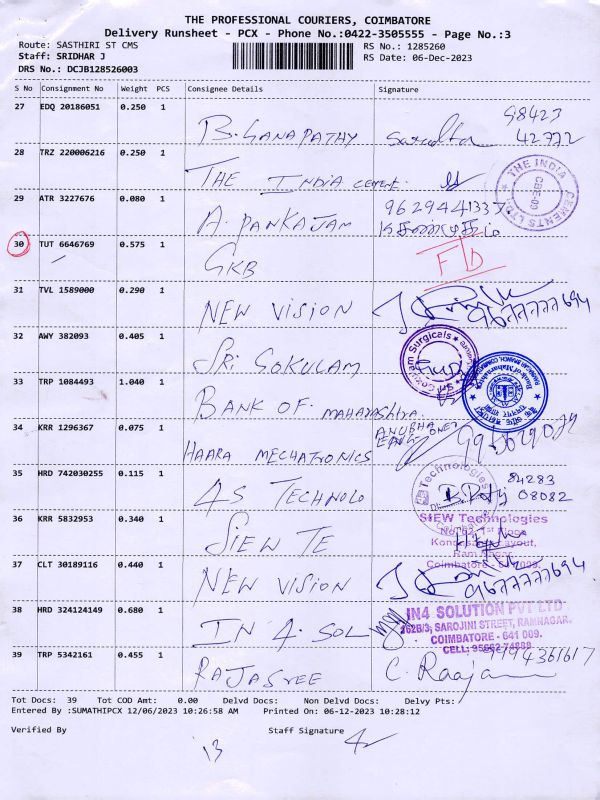 THE PROFESSIONAL COURIERS, COIMBATORE
Delivery Runsheet - PCX - Phone No.:0422-3505555 - Page No.:3
Route: SASTHIRI ST CMS RS No.: 1285260
Staff: SRIDHAR J RS Date: 06-Dec-2023
DRS No.: DCJB128526003
S No Consignment No Weight PCS Consignee Details Signature
27 EDQ 20186051 0.250 1
B. GANAPATHY 98423
42772
28 TRZ 220006216 0.250 1
THE INDIA cement.
THE INDIA CEMENTS LTD. CBE-09
29 ATR 3227676 0.080 1
A. PANKAJAM 9629441337
30 TUT 6646769 0.575 1
GKB FD
31 TVL 1589000 0.290 1
NEW VISION 9677777694
32 AWY 382093 0.405 1
SRI GOKULAM
Surgicals
33 TRP 1084493 1.040 1
BANK OF maharashtra.
34 KRR 1296367 0.075 1
HAARA MECHATRONICS
35 HRD 742030255 0.115 1
4S TECHNOLO 84283
08082
Technologies
36 KRR 5832953 0.340 1
SIEW TE
SIEW Technologies
Ram Nagar
Coimbatore - 641 009.
37 CLT 30189116 0.440 1
NEW VISION 9677777694
38 HRD 324124149 0.680 1
IN 4 SOL
IN4 SOLUTION PVT LTD
262B/3, SAROJINI STREET, RAMNAGAR,
COIMBATORE - 641 009.
CELL: 95662 74888
39 TRP 5342161 0.455 1
RAJASREE C. Raajam 9994361617
Tot Docs: 39 Tot COD Amt: 0.00 Delvd Docs: Non Delvd Docs: Delvy Pts:
Entered By :SUMATHIPCX 12/06/2023 10:26:58 AM Printed On: 06-12-2023 10:28:12
Verified By Staff Signature
13